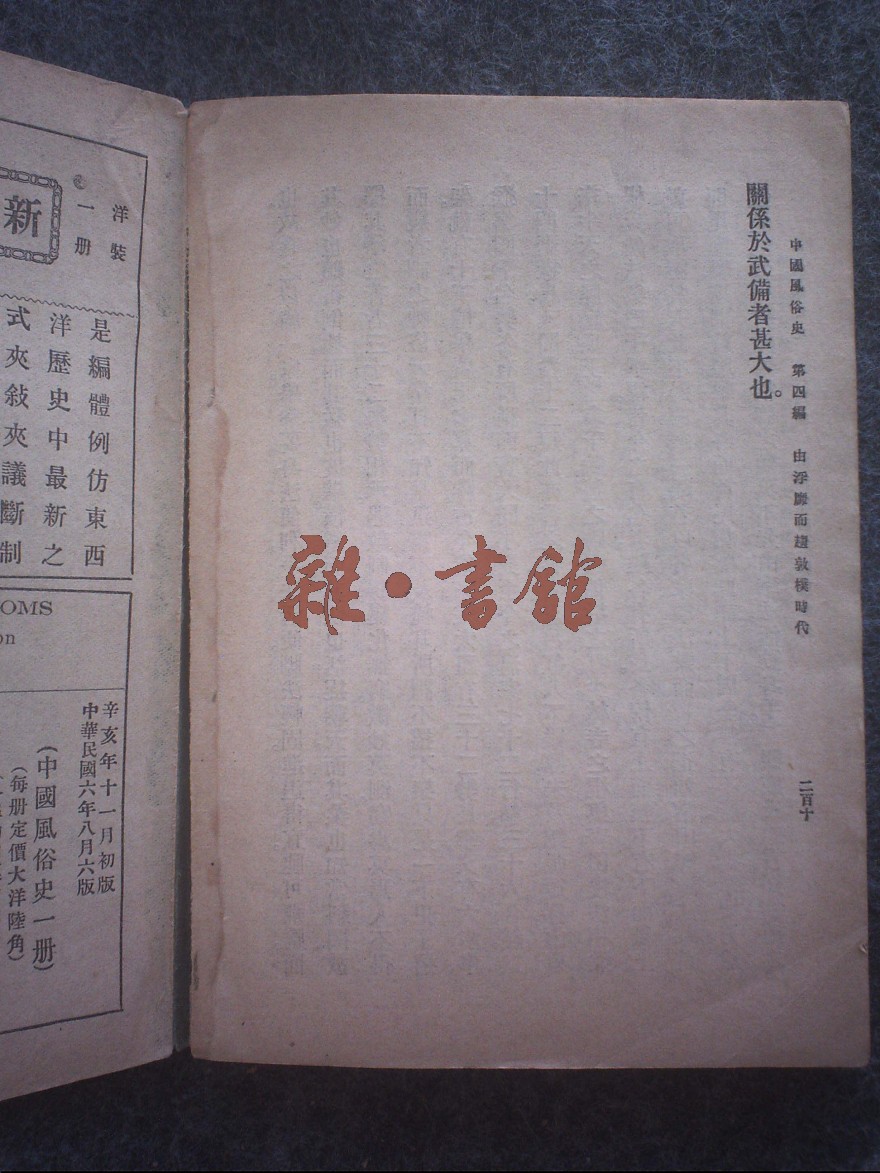 中國風俗史　第四編　由浮靡而趨敦樸時代
二百十
關係於武備者甚大也。
雜·書館
洋裝
一册
新
是編體例仿東西
洋歷史中最新之
式夾敍夾議斷制
OMS
on
辛亥年十一月初版
中華民國六年八月六版
(中國風俗史一册)
(每册定價大洋陸角)